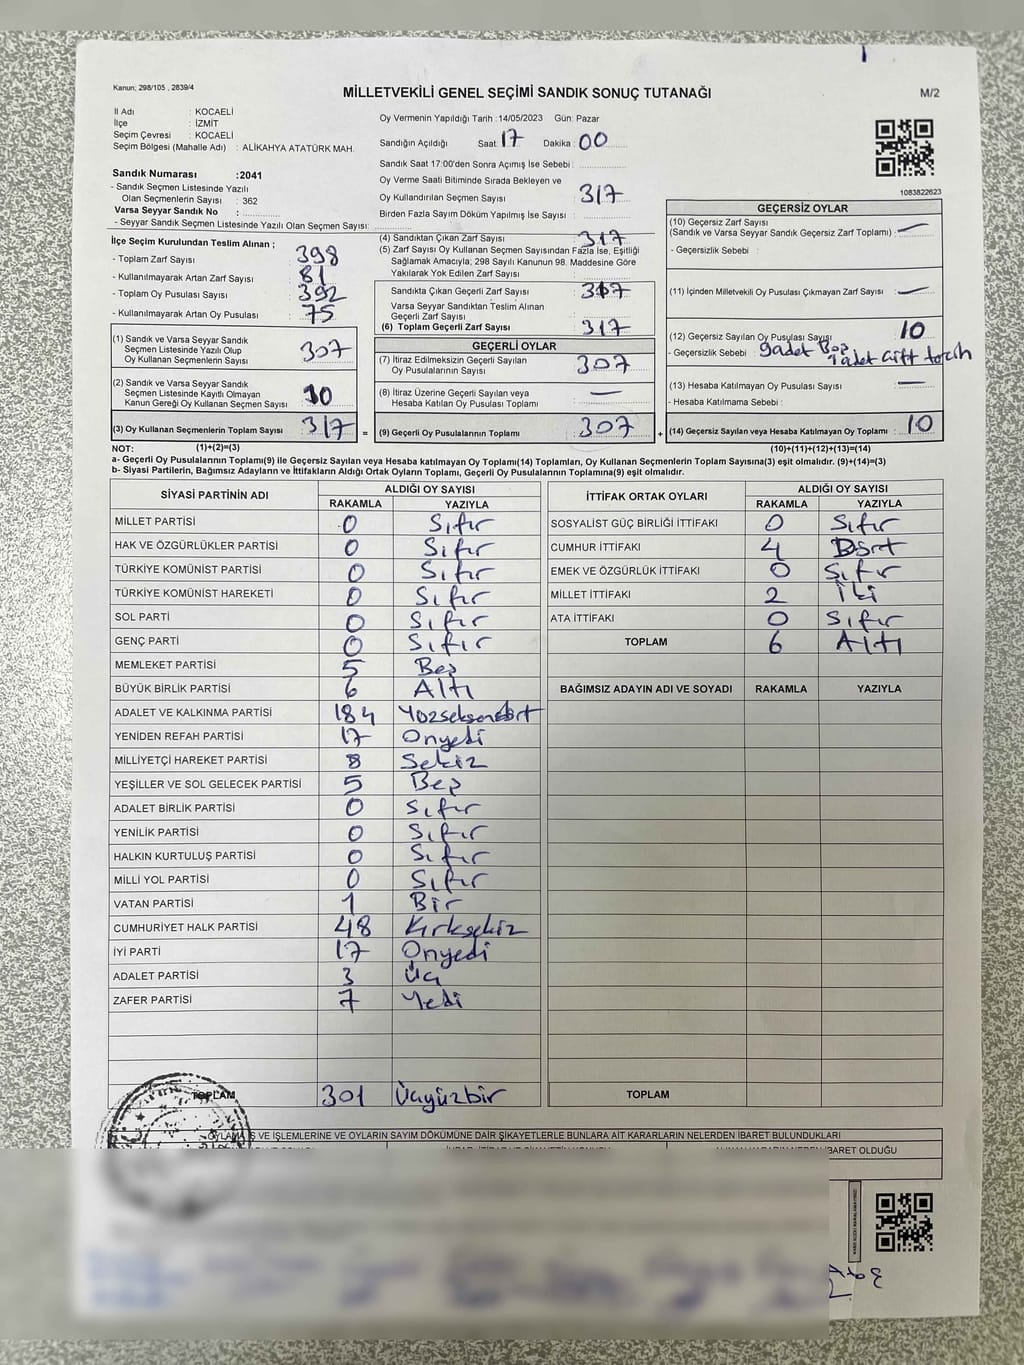 Kanun; 298/105 , 2839/4
MİLLETVEKİLİ GENEL SEÇİMİ SANDIK SONUÇ TUTANAĞI
M/2
İl Adı : KOCAELİ
İlçe : İZMİT
Seçim Çevresi : KOCAELİ
Seçim Bölgesi (Mahalle Adı) : ALİKAHYA ATATÜRK MAH.
Sandık Numarası :2041
- Sandık Seçmen Listesinde Yazılı
Olan Seçmenlerin Sayısı : 362
Varsa Seyyar Sandık No :
- Seyyar Sandık Seçmen Listesinde Yazılı Olan Seçmen Sayısı:
Oy Vermenin Yapıldığı Tarih :14/05/2023 Gün: Pazar
Sandığın Açıldığı Saat 17 Dakika 00
Sandık Saat 17:00'den Sonra Açımış İse Sebebi :
Oy Verme Saati Bitiminde Sırada Bekleyen ve
Oy Kullandırılan Seçmen Sayısı : 317
Birden Fazla Sayım Döküm Yapılmış İse Sayısı :
1083822623
İlçe Seçim Kurulundan Teslim Alınan ;
- Toplam Zarf Sayısı : 398
- Kullanılmayarak Artan Zarf Sayısı : 81
- Toplam Oy Pusulası Sayısı : 392
- Kullanılmayarak Artan Oy Pusulası : 75
(1) Sandık ve Varsa Seyyar Sandık
Seçmen Listesinde Yazılı Olup
Oy Kullanan Seçmenlerin Sayısı : 307
(2) Sandık ve Varsa Seyyar Sandık
Seçmen Listesinde Kayıtlı Olmayan
Kanun Gereği Oy Kullanan Seçmen Sayısı : 10
(3) Oy Kullanan Seçmenlerin Toplam Sayısı : 317 =
(4) Sandıktan Çıkan Zarf Sayısı : 317
(5) Zarf Sayısı Oy Kullanan Seçmen Sayısından Fazla İse, Eşitliği
Sağlamak Amacıyla; 298 Sayılı Kanunun 98. Maddesine Göre
Yakılarak Yok Edilen Zarf Sayısı :
Sandıkta Çıkan Geçerli Zarf Sayısı : 317
Varsa Seyyar Sandıktan Teslim Alınan
Geçerli Zarf Sayısı :
(6) Toplam Geçerli Zarf Sayısı : 317
GEÇERLİ OYLAR
(7) İtiraz Edilmeksizin Geçerli Sayılan
Oy Pusulalarının Sayısı : 307
(8) İtiraz Üzerine Geçerli Sayılan veya
Hesaba Katılan Oy Pusulası Toplamı : —
(9) Geçerli Oy Pusulalarının Toplamı : 307 +
GEÇERSİZ OYLAR
(10) Geçersiz Zarf Sayısı
(Sandık ve Varsa Seyyar Sandık Geçersiz Zarf Toplamı) : —
- Geçersizlik Sebebi :
(11) İçinden Milletvekili Oy Pusulası Çıkmayan Zarf Sayısı : —
(12) Geçersiz Sayılan Oy Pusulası Sayısı : 10
- Geçersizlik Sebebi : 9 adet Boş
1 adet çift tercih
(13) Hesaba Katılmayan Oy Pusulası Sayısı : —
- Hesaba Katılmama Sebebi :
(14) Geçersiz Sayılan veya Hesaba Katılmayan Oy Toplamı : 10
NOT: (1)+(2)=(3) (10)+(11)+(12)+(13)=(14)
a- Geçerli Oy Pusulalarının Toplamı(9) ile Geçersiz Sayılan veya Hesaba katılmayan Oy Toplamı(14) Toplamları, Oy Kullanan Seçmenlerin Toplam Sayısına(3) eşit olmalıdır. (9)+(14)=(3)
b- Siyasi Partilerin, Bağımsız Adayların ve İttifakların Aldığı Oyların Toplamı, Geçerli Oy Pusulalarının Toplamına(9) eşit olmalıdır.
SİYASİ PARTİNİN ADI ALDIĞI OY SAYISI
RAKAMLA YAZIYLA
MİLLET PARTİSİ 0 Sıfır
HAK VE ÖZGÜRLÜKLER PARTİSİ 0 Sıfır
TÜRKİYE KOMÜNİST PARTİSİ 0 Sıfır
TÜRKİYE KOMÜNİST HAREKETİ 0 Sıfır
SOL PARTİ 0 Sıfır
GENÇ PARTİ 0 Sıfır
MEMLEKET PARTİSİ 5 Beş
BÜYÜK BİRLİK PARTİSİ 6 Altı
ADALET VE KALKINMA PARTİSİ 184 Yüzseksendört
YENİDEN REFAH PARTİSİ 17 Onyedi
MİLLİYETÇİ HAREKET PARTİSİ 8 Sekiz
YEŞİLLER VE SOL GELECEK PARTİSİ 5 Beş
ADALET BİRLİK PARTİSİ 0 Sıfır
YENİLİK PARTİSİ 0 Sıfır
HALKIN KURTULUŞ PARTİSİ 0 Sıfır
MİLLİ YOL PARTİSİ 0 Sıfır
VATAN PARTİSİ 1 Bir
CUMHURİYET HALK PARTİSİ 48 Kırksekiz
İYİ PARTİ 17 Onyedi
ADALET PARTİSİ 3 Üç
ZAFER PARTİSİ 7 Yedi
TOPLAM 301 Üçyüzbir
İTTİFAK ORTAK OYLARI ALDIĞI OY SAYISI
RAKAMLA YAZIYLA
SOSYALİST GÜÇ BİRLİĞİ İTTİFAKI 0 Sıfır
CUMHUR İTTİFAKI 4 Dört
EMEK VE ÖZGÜRLÜK İTTİFAKI 0 Sıfır
MİLLET İTTİFAKI 2 İki
ATA İTTİFAKI 0 Sıfır
TOPLAM 6 Altı
BAĞIMSIZ ADAYIN ADI VE SOYADI RAKAMLA YAZIYLA
TOPLAM
VE İŞLEMLERİNE VE OYLARIN SAYIM DÖKÜMÜNE DAİR ŞİKAYETLERLE BUNLARA AİT KARARLARIN NELERDEN İBARET BULUNDUKLARI
İBARET OLDUĞU